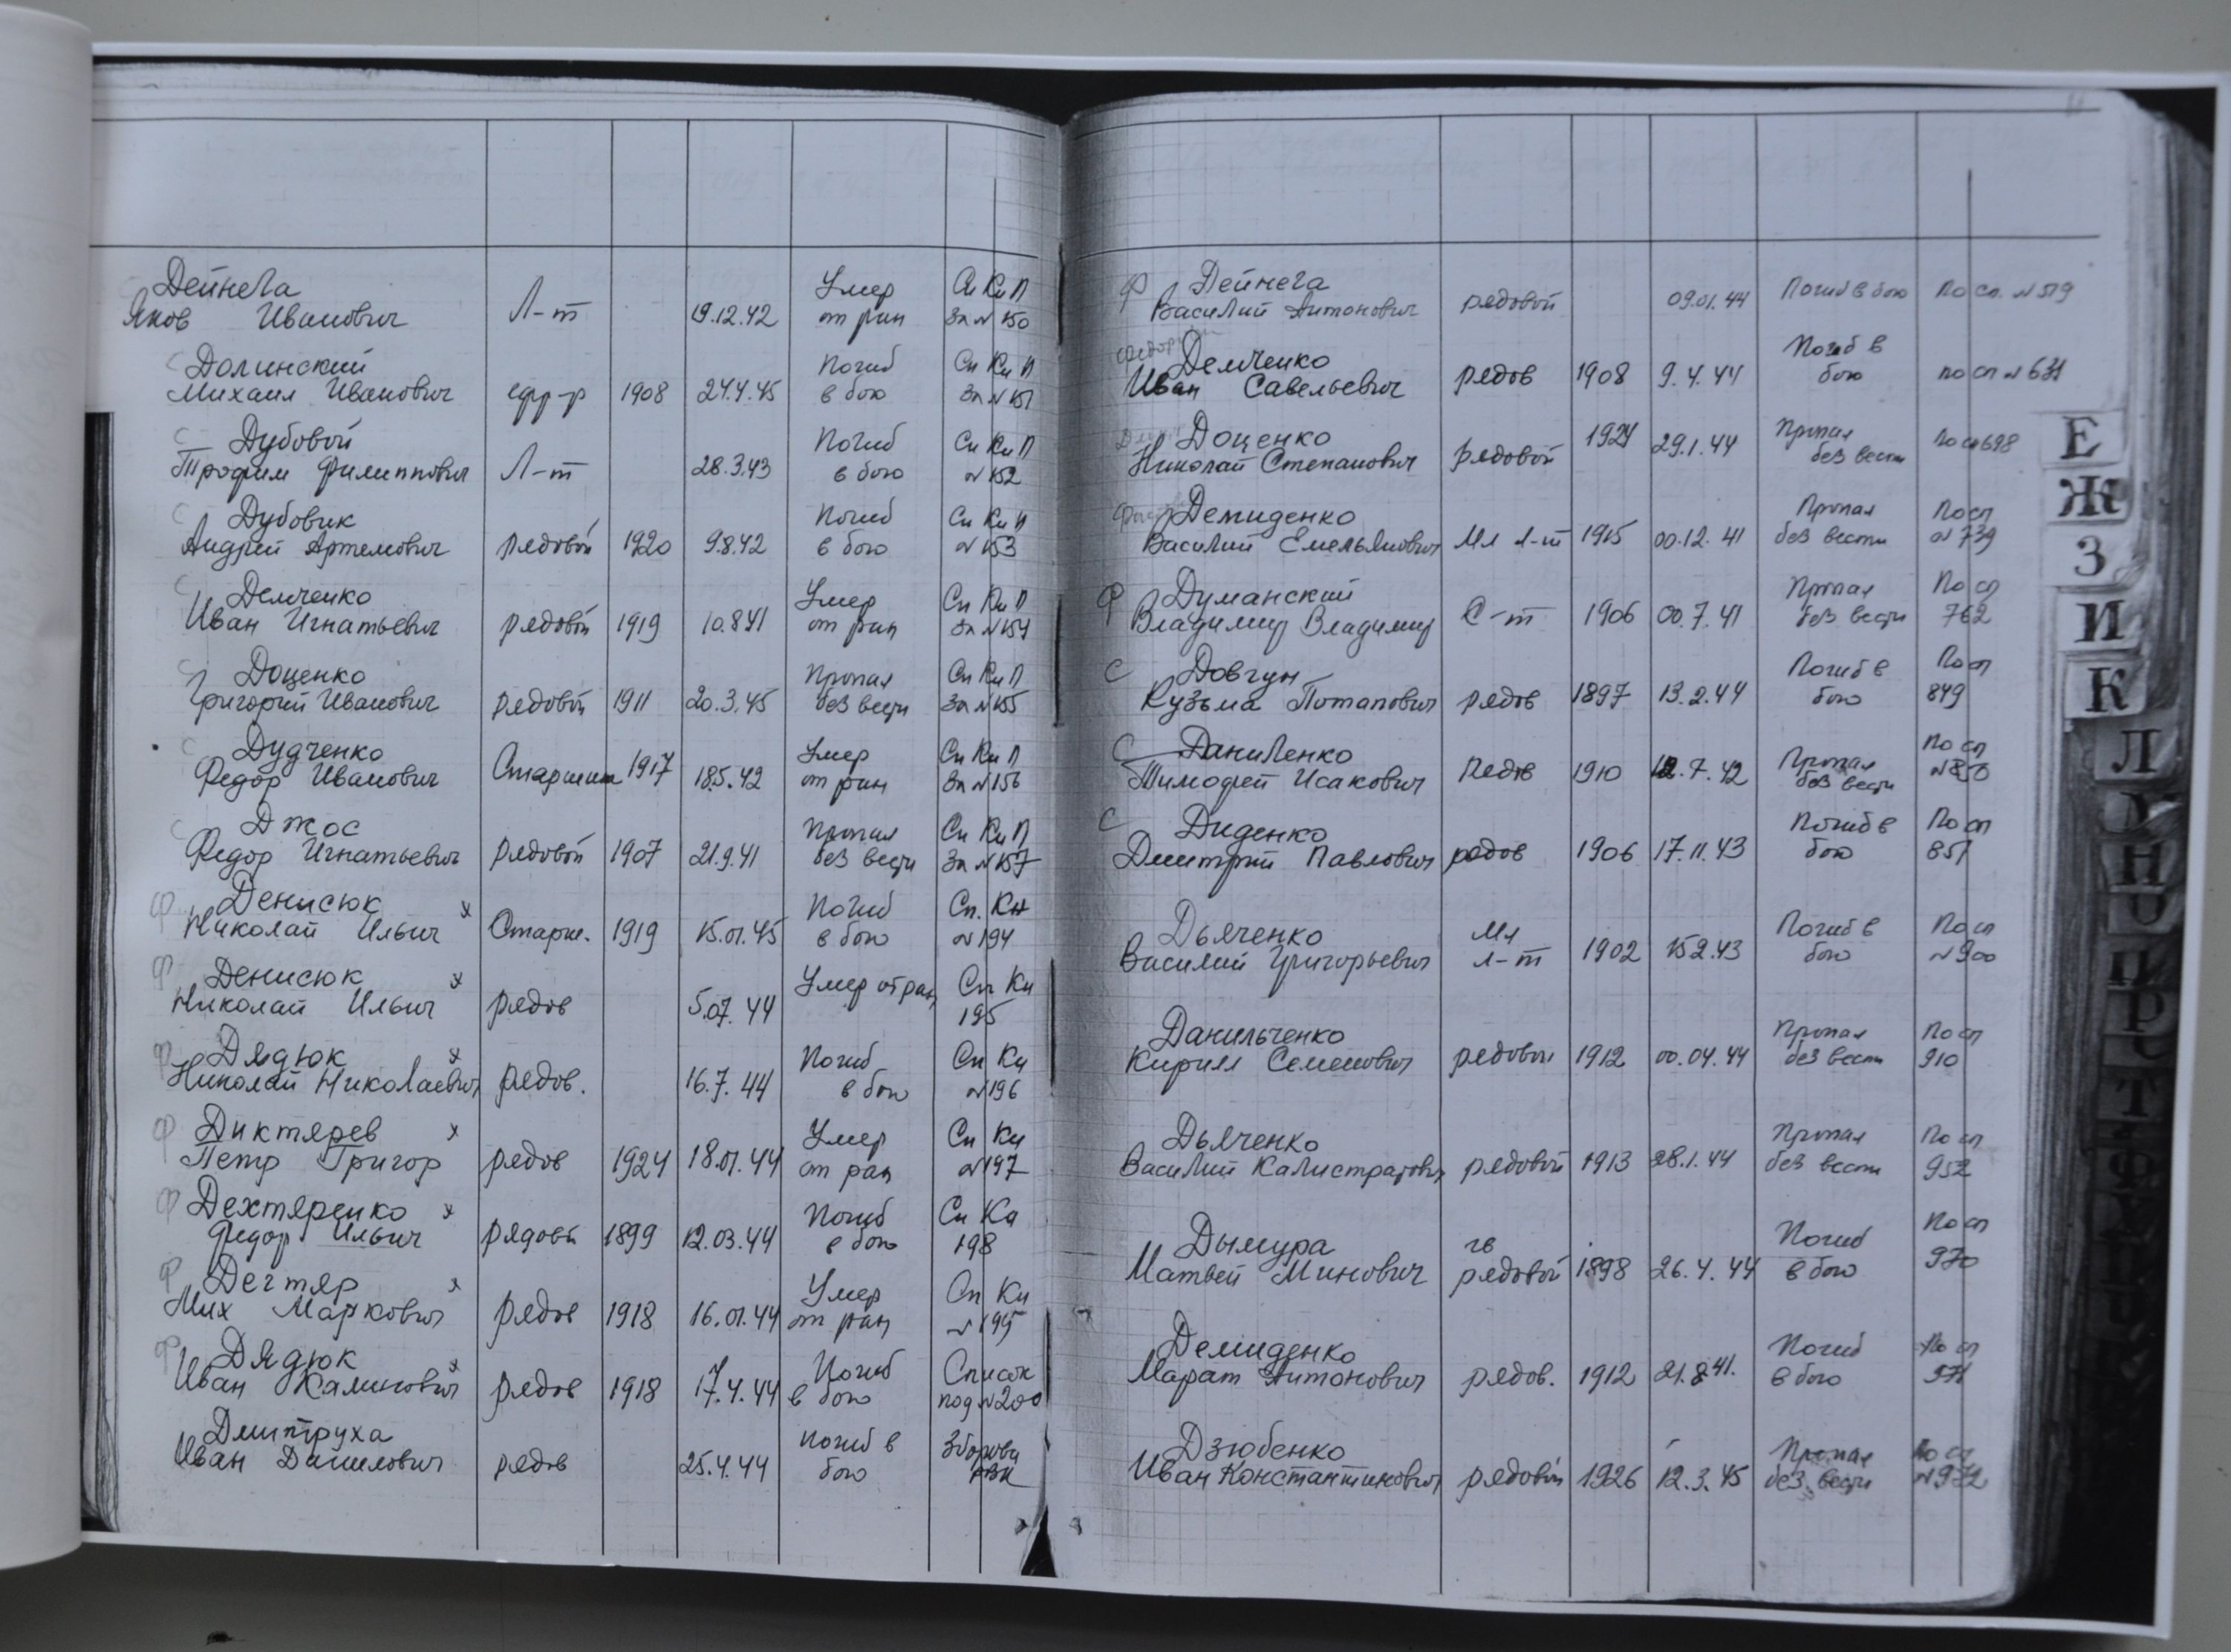 Дейнега Умер Сп Кн П
Яков Иванович Л-т 19.12.42 от ран За № 150
Долинский Погиб Сп Кн П
Михаил Иванович ефр-р 1908 24.4.45 в бою За № 151
Дубовой Погиб Сп Кн П
Трофим Филиппович Л-т 28.3.43 в бою № 152
Дубовик Погиб Сп Кн П
Андрей Артемович рядовой 1920 9.8.42 в бою № 153
Демченко Умер Сп Кн П
Иван Игнатьевич рядовой 1919 10.8.41 от ран За № 154
Доценко Пропал Сп Кн П
Григорий Иванович рядовой 1911 20.3.45 без вести За № 155
Дудченко Умер Сп Кн П
Федор Иванович Старшина 1917 18.5.42 от ран За № 156
Джос Пропал Сп Кн П
Федор Игнатьевич рядовой 1907 21.9.41 без вести За № 157
Ф Денисюк х Погиб Сп. Кн
Николай Ильич Старш. 1919 15.01.45 в бою № 194
Ф Денисюк х Умер от ран Сп Кн
Николай Ильич рядов 5.07.44 195
Ф Дядюк х Погиб Сп Кн
Николай Николаевич рядов. 16.7.44 в бою № 196
Ф Диктярев х Умер Сп Кн
Петр Григор рядов 1924 18.01.44 от ран № 197
Ф Дехтяренко х Погиб Сп Кн
Федор Ильич рядовй 1899 12.03.44 в бою 198
Ф Дегтяр х Умер Сп Кн
Мих Маркович рядов 1918 16.01.44 от ран № 199
Ф Дядюк х Погиб Список
Иван Калинович рядов 1918 17.4.44 в бою под № 200
Дмитруха Погиб в
Иван Данилович рядов 25.4.44 бою РВК
Ф Дейнега
Василий Антонович рядовой 09.01.44 Погиб в бою По сп. № 519
Демченко Погиб в
Иван Савельевич рядов 1908 9.4.44 бою по сп № 631
Доценко 1924 Пропал
Николай Степанович рядовой 29.1.44 без вести По сп 698
Демиденко Пропал По сп
Василий Емельянович Мл л-т 1915 00.12.41 без вести № 739
Ф Думанский Пропал По сп
Владимир Владимир С-т 1906 00.7.41 без вести 762
С Довгун Погиб в По сп
Кузьма Потапович рядов 1897 13.2.44 бою 849
С Даниленко Пропал По сп
Тимофей Исакович Рядов 1910 12.7.42 без вести № 850
С Диденко Погиб в По сп
Дмитрий Павлович рядов 1906 17.11.43 бою 851
Дьяченко Мл Погиб в По сп
Василий Григорьевич л-т 1902 15.2.43 бою № 900
Данильченко Пропал По сп
Кирилл Семенович рядовой 1912 00.04.44 без вести 910
Дьяченко Пропал По сп
Василий Калистратович рядовой 1913 28.1.44 без вести 952
Дымура гв Погиб По сп
Матвей Минович рядовой 1898 26.4.44 в бою 970
Демиденко Погиб По сп
Марат Антонович рядов. 1912 21.8.41. в бою 971
Дзюбенко Пропал По сп
Иван Константинович рядовой 1926 12.3.45 без вести № 972
Е
Ж
З
И
К
Л
Н
П
Р
Т